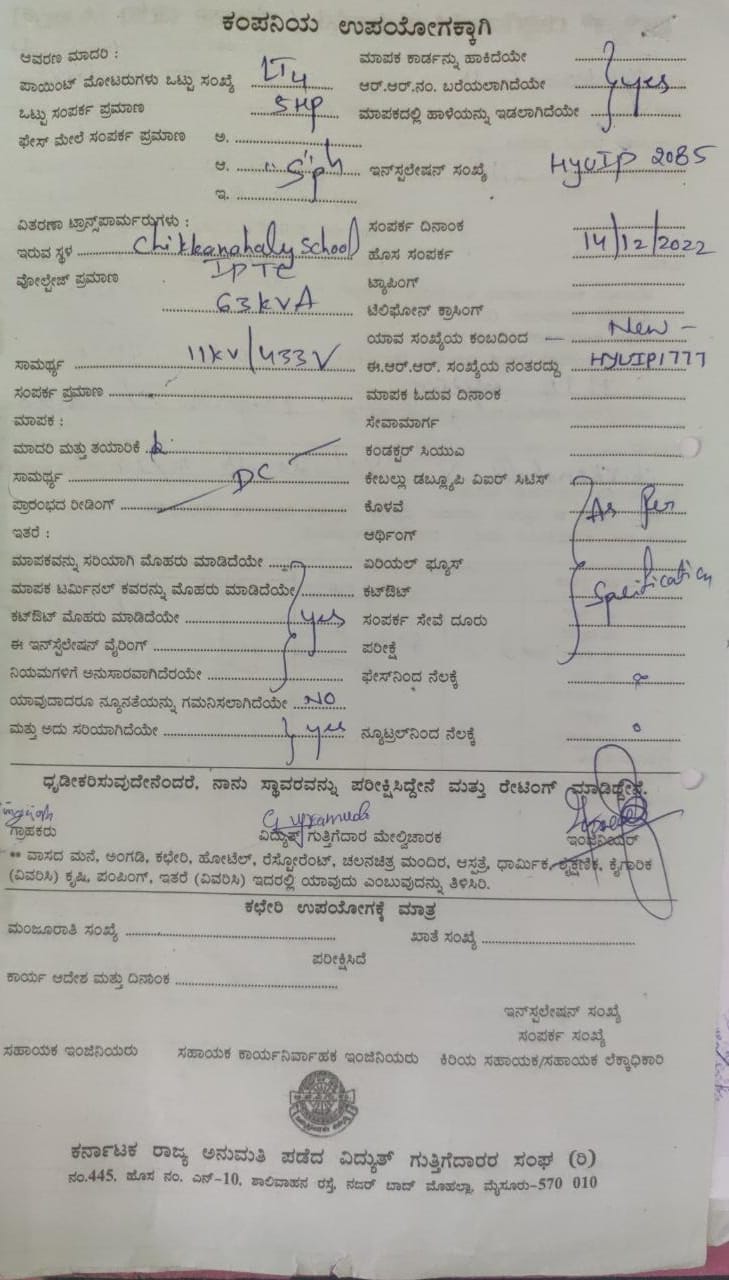 ಕಂಪನಿಯ ಉಪಯೋಗಕ್ಕಾಗಿ
ಆವರಣ ಮಾದರಿ : ಮಾಪಕ ಕಾರ್ಡನ್ನು ಹಾಕಿದೆಯೇ
ಪಾಯಿಂಟ್ ಮೋಟರುಗಳು ಒಟ್ಟು ಸಂಖ್ಯೆ LT4 ಆರ್.ಆರ್.ನಂ. ಬರೆಯಲಾಗಿದೆಯೇ yes
ಒಟ್ಟು ಸಂಪರ್ಕ ಪ್ರಮಾಣ 5HP ಮಾಪಕದಲ್ಲಿ ಹಾಳೆಯನ್ನು ಇಡಲಾಗಿದೆಯೇ
ಫೇಸ್ ಮೇಲೆ ಸಂಪರ್ಕ ಪ್ರಮಾಣ ಅ.
ಆ. ಇನ್‌ಸ್ಪಲೇಷನ್ ಸಂಖ್ಯೆ HYUIP 2085
ಇ.
ವಿತರಣಾ ಟ್ರಾನ್ಸ್‌ಪಾರ್ಮರುಗಳು : ಸಂಪರ್ಕ ದಿನಾಂಕ
ಇರುವ ಸ್ಥಳ Chikkanahaly School ಹೊಸ ಸಂಪರ್ಕ 14/12/2022
ವೋಲ್ಟೇಜ್ ಪ್ರಮಾಣ ಟ್ಯಾಪಿಂಗ್
63kVA ಟೆಲಿಫೋನ್ ಕ್ರಾಸಿಂಗ್
ಯಾವ ಸಂಖ್ಯೆಯ ಕಂಬದಿಂದ — New —
ಸಾಮರ್ಥ್ಯ 11kv/433V ಈ.ಆರ್.ಆರ್. ಸಂಖ್ಯೆಯ ನಂತರದ್ದು HYUIP1777
ಸಂಪರ್ಕ ಪ್ರಮಾಣ ಮಾಪಕ ಓದುವ ದಿನಾಂಕ
ಮಾಪಕ : ಸೇವಾಮಾರ್ಗ
ಮಾದರಿ ಮತ್ತು ತಯಾರಿಕೆ ಕಂಡಕ್ಟರ್ ಸಿಯುಎ
ಸಾಮರ್ಥ್ಯ DC ಕೇಬಲ್ಲು ಡಬ್ಲ್ಯೂಪಿ ವಿಐರ್ ಸಿಟಿಸ್
ಪ್ರಾರಂಭದ ರೀಡಿಂಗ್ ಕೊಳವೆ As Per
ಇತರೆ : ಆರ್ಥಿಂಗ್
ಮಾಪಕವನ್ನು ಸರಿಯಾಗಿ ಮೊಹರು ಮಾಡಿದೆಯೇ ಏರಿಯಲ್ ಫ್ಯೂಸ್
ಮಾಪಕ ಟರ್ಮಿನಲ್ ಕವರನ್ನು ಮೊಹರು ಮಾಡಿದೆಯೇ ಕಟ್‌ಔಟ್
ಕಟ್‌ಔಟ್ ಮೊಹರು ಮಾಡಿದೆಯೇ yes ಸಂಪರ್ಕ ಸೇವೆ ದೂರು
ಈ ಇನ್‌ಸ್ಪೆಲೇಷನ್ ವೈರಿಂಗ್ ಪರೀಕ್ಷೆ
ನಿಯಮಗಳಿಗೆ ಅನುಸಾರವಾಗಿದೆರಯೇ ಫೇಸ್‌ನಿಂದ ನೆಲಕ್ಕೆ
ಯಾವುದಾದರೂ ನ್ಯೂನತೆಯನ್ನು ಗಮನಿಸಲಾಗಿದೆಯೇ NO
ಮತ್ತು ಅದು ಸರಿಯಾಗಿದೆಯೇ yes ನ್ಯೂಟ್ರಲ್‌ನಿಂದ ನೆಲಕ್ಕೆ
ಧೃಡೀಕರಿಸುವುದೇನೆಂದರೆ, ನಾನು ಸ್ಥಾವರವನ್ನು ಪರೀಕ್ಷಿಸಿದ್ದೇನೆ ಮತ್ತು ರೇಟಿಂಗ್ ಮಾಡಿದ್ದೇನೆ.
ಗ್ರಾಹಕರು ವಿದ್ಯುತ್ ಗುತ್ತಿಗೆದಾರ ಮೇಲ್ವಿಚಾರಕ ಇಂಜಿನಿಯರ್
** ವಾಸದ ಮನೆ, ಅಂಗಡಿ, ಕಛೇರಿ, ಹೋಟೆಲ್, ರೆಸ್ಟೋರೆಂಟ್, ಚಲನಚಿತ್ರ ಮಂದಿರ, ಆಸ್ಪತ್ರೆ, ಧಾರ್ಮಿಕ, ಶೈಕ್ಷಣಿಕ, ಕೈಗಾರಿಕ
(ವಿವರಿಸಿ) ಕೃಷಿ, ಪಂಪಿಂಗ್, ಇತರೆ (ವಿವರಿಸಿ) ಇದರಲ್ಲಿ ಯಾವುದು ಎಂಬುವುದನ್ನು ತಿಳಿಸಿರಿ.
ಕಛೇರಿ ಉಪಯೋಗಕ್ಕೆ ಮಾತ್ರ
ಮಂಜೂರಾತಿ ಸಂಖ್ಯೆ ಖಾತೆ ಸಂಖ್ಯೆ
ಪರೀಕ್ಷಿಸಿದೆ
ಕಾರ್ಯ ಆದೇಶ ಮತ್ತು ದಿನಾಂಕ
ಇನ್‌ಸ್ಪಲೇಷನ್ ಸಂಖ್ಯೆ
ಸಂಪರ್ಕ ಸಂಖ್ಯೆ
ಸಹಾಯಕ ಇಂಜಿನಿಯರು ಸಹಾಯಕ ಕಾರ್ಯನಿರ್ವಾಹಕ ಇಂಜಿನಿಯರು ಕಿರಿಯ ಸಹಾಯಕ/ಸಹಾಯಕ ಲೆಕ್ಕಾಧಿಕಾರಿ
ಕರ್ನಾಟಕ ರಾಜ್ಯ ಅನುಮತಿ ಪಡೆದ ವಿದ್ಯುತ್ ಗುತ್ತಿಗೆದಾರರ ಸಂಘ (ರಿ)
ನಂ.445, ಹೊಸ ನಂ. ಎನ್-10, ಶಾಲಿವಾಹನ ರಸ್ತೆ, ನಜರ್ ಬಾದ್ ಮೊಹಲ್ಲಾ, ಮೈಸೂರು-570 010